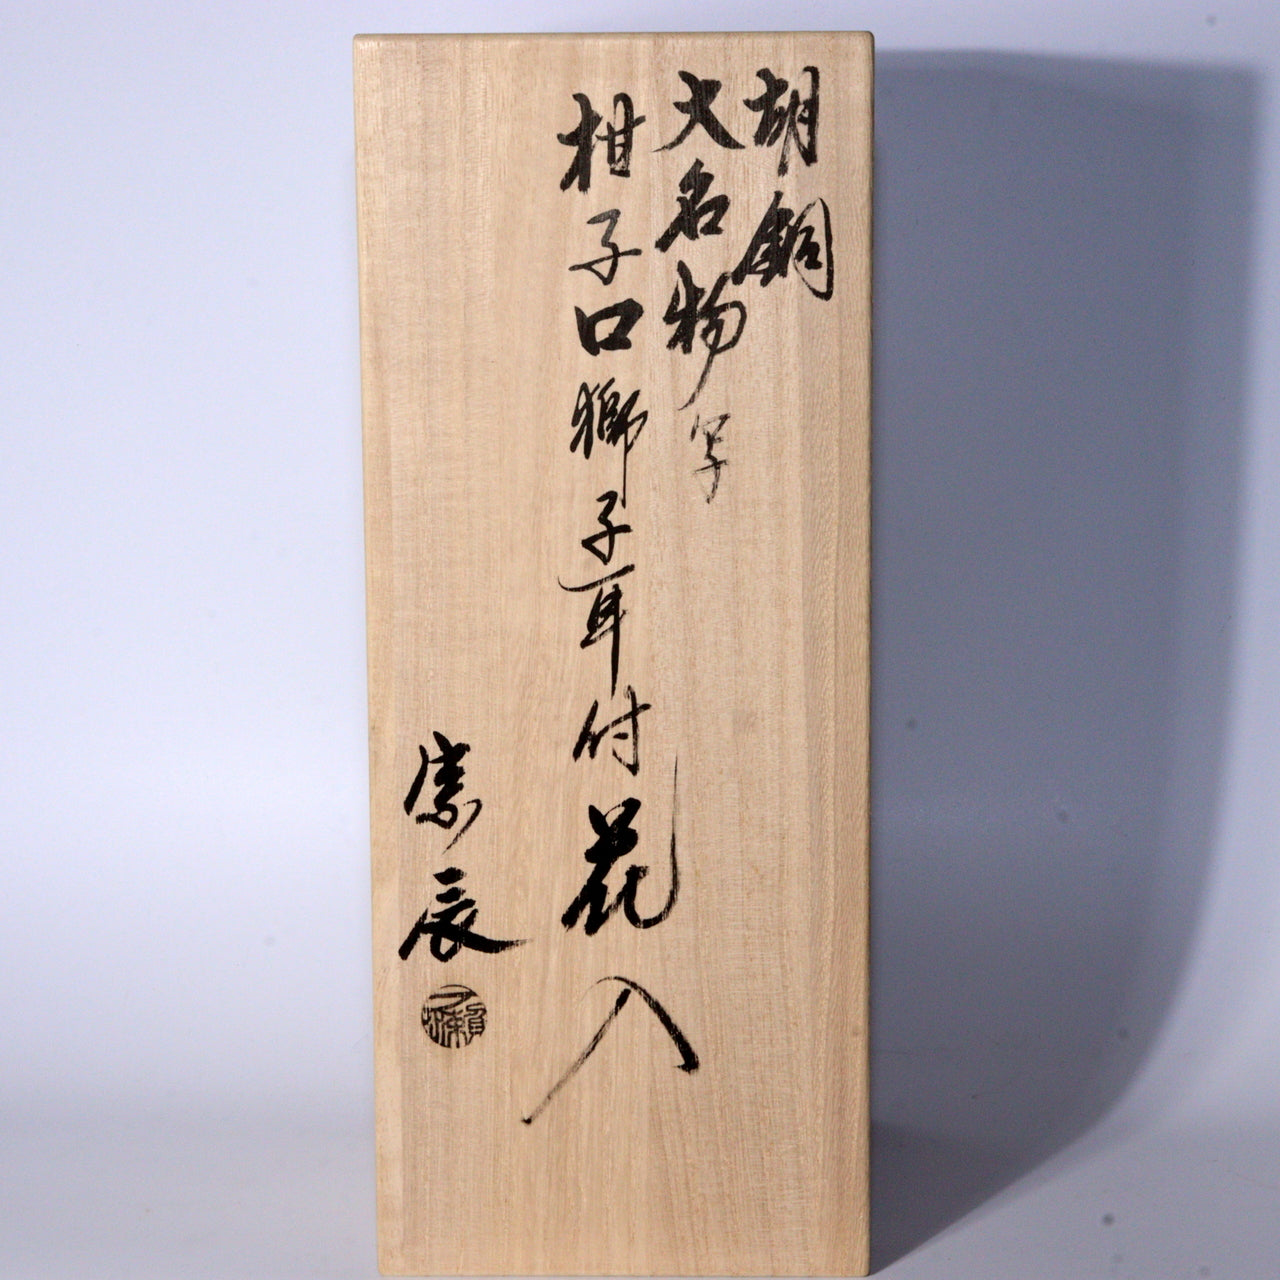 胡銅
大名物写
柑子口獅子耳付花入
宗辰